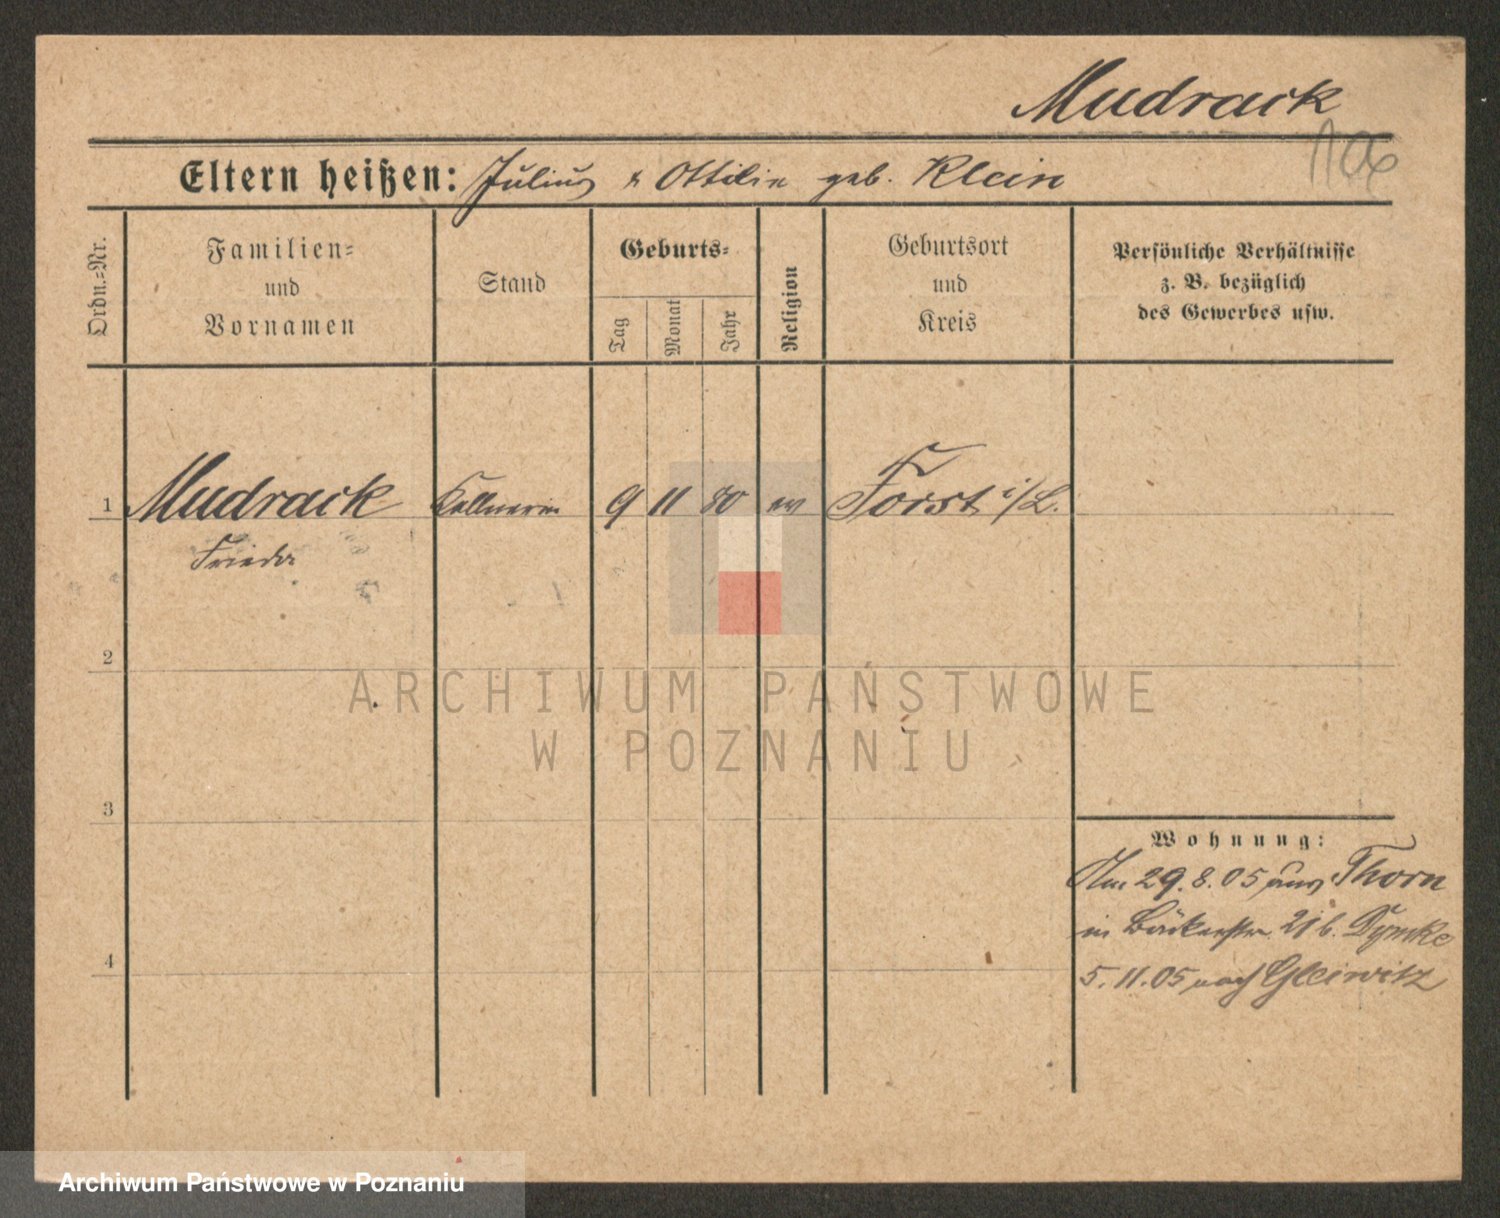 Mudrack
106
Eltern heißen: Julius & Ottilie geb. Klein
Ordn.=Nr.
Familien=
und
Vornamen
Stand
Geburts=
Tag
Monat
Jahr
Religion
Geburtsort
und
Kreis
Persönliche Verhältnisse
z. B. bezüglich
des Gewerbes usw.
1 Mudrack Kellnerin 9 11 80 ev Forst i/L.
Frieda
2
ARCHIWUM PAŃSTWOWE
W POZNANIU
3
Wohnung:
Am 29.8.05 aus Thorn
in Bäckerstr. 21 b. Dymke
4
5.11.05 nach Gleiwitz
Archiwum Państwowe w Poznaniu